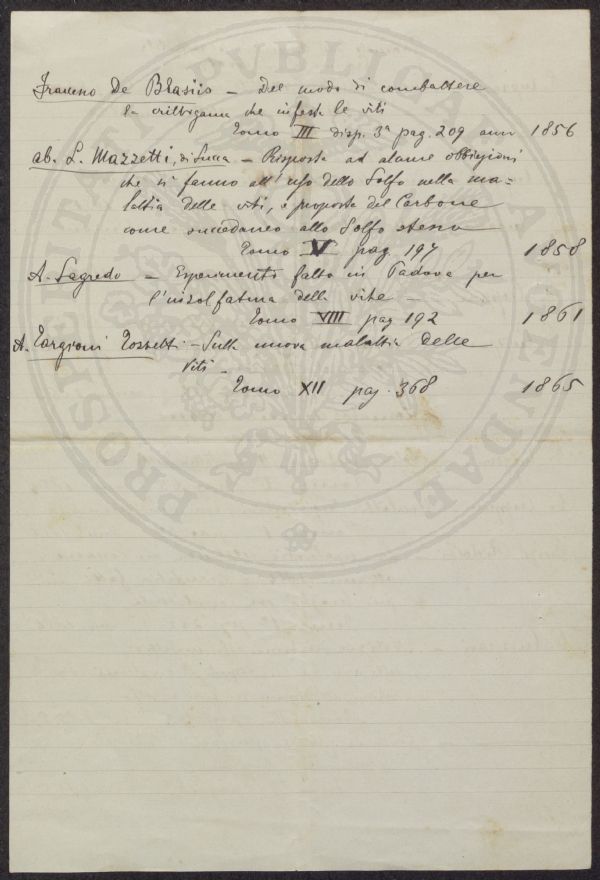 De Blasiis – Del modo di combattere
la crittogama che infesta le viti
Tomo III disp. 3ª pag. 209 anno 1856
ab. L. Mazzetti, di Lucca – Risposta ad alcune obbiezioni
che si fanno all'uso dello Solfo nella ma=
lattia delle viti, e proposta del Carbone
come succedaneo allo Solfo stesso
Tomo V pag 197 1858
A. Sagredo – Esperimento fatto in Padova per
l'insolfatura della vite –
Tomo VIII pag 192 1861
A. Targioni Tozzetti – Sulla nuova malattia delle
Viti –
Tomo XII pag. 368 1865
PROSPERITATI PUBLICAE AUGENDAE